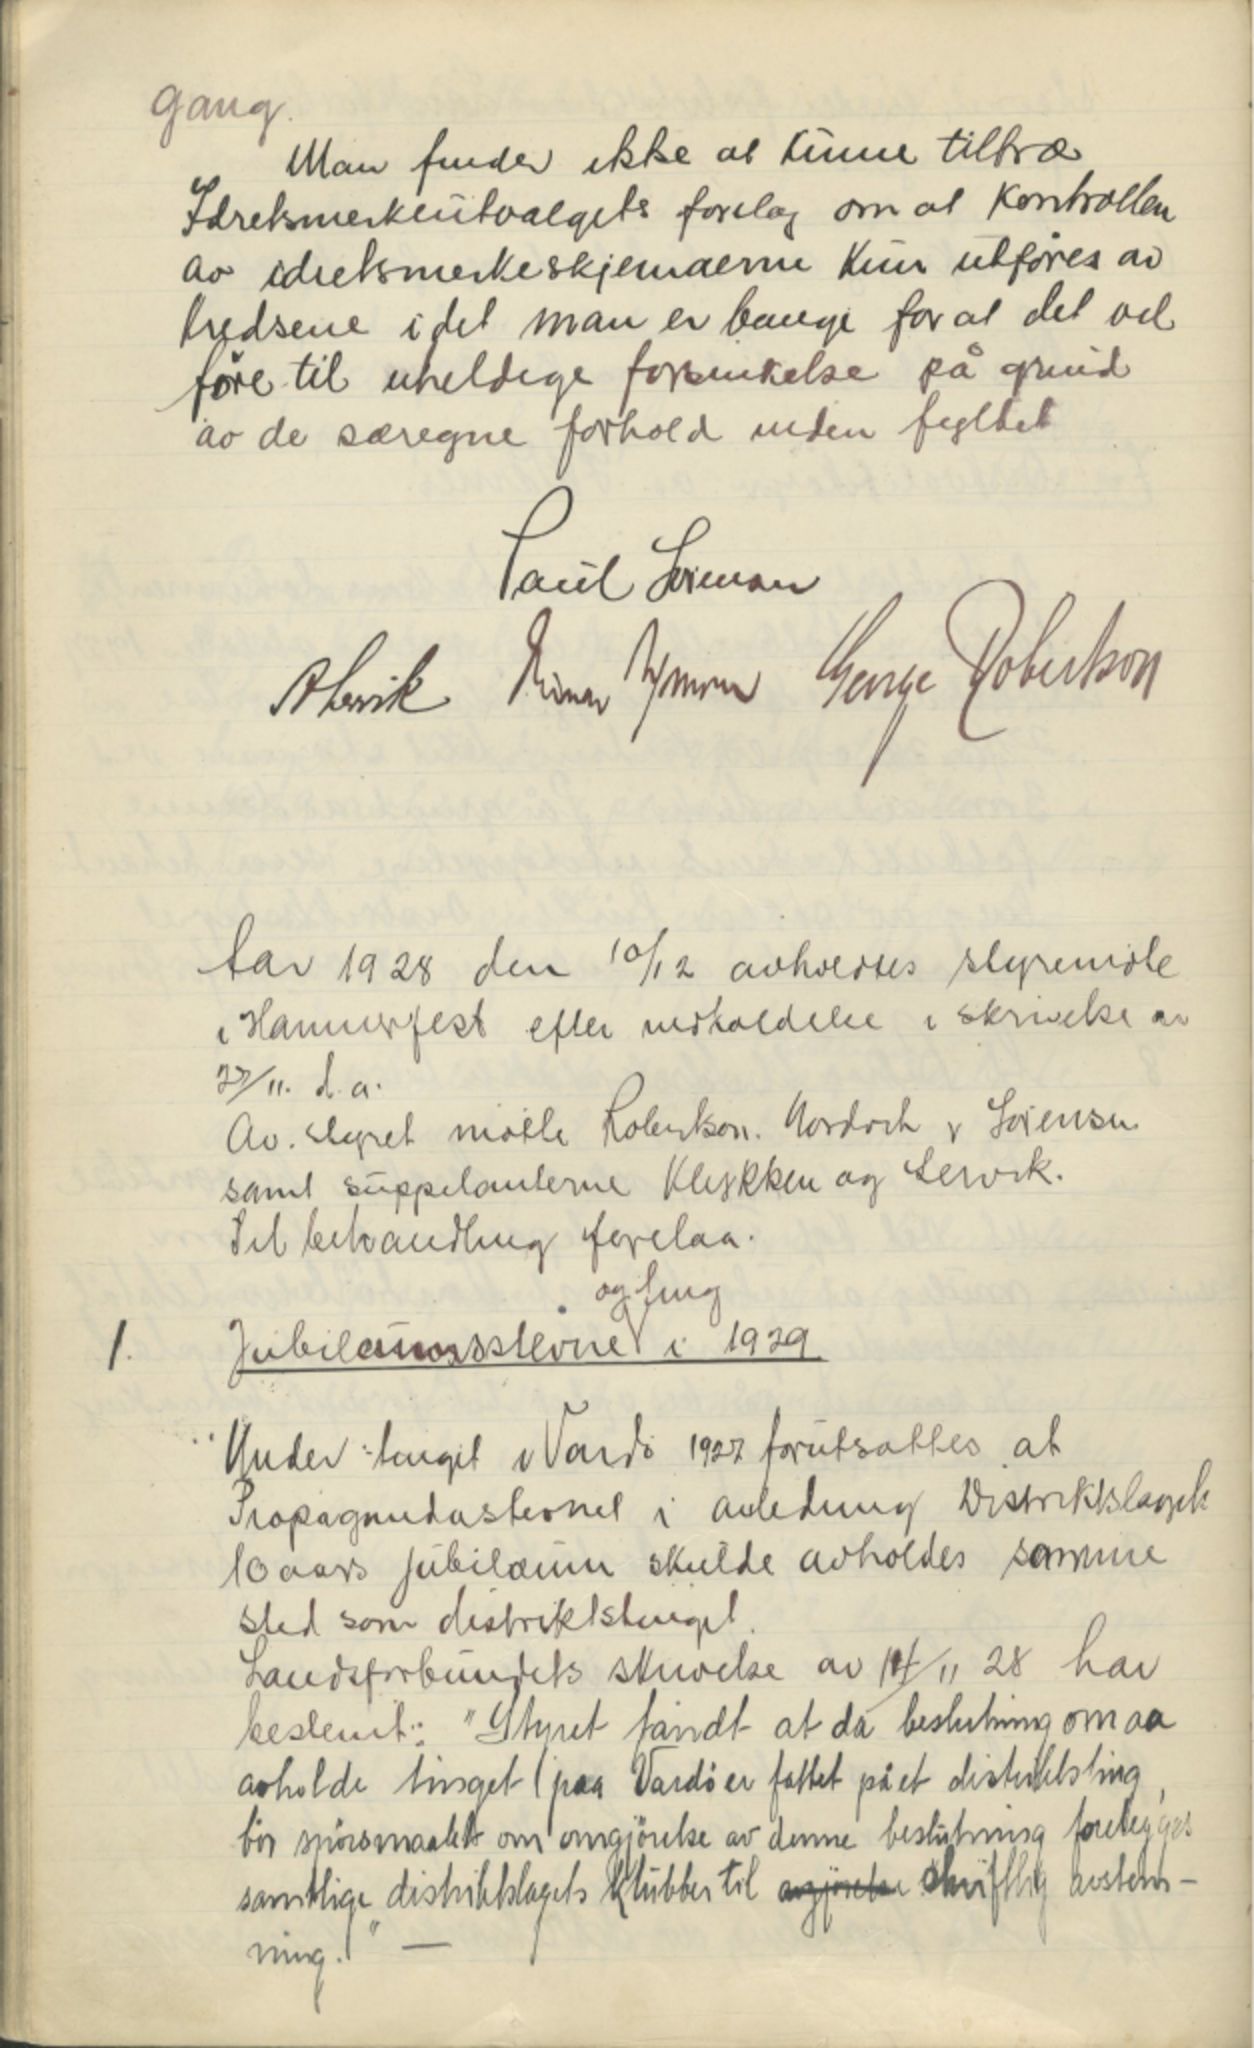 gang.
Man finder ikke at kunne tiltræ
Idretsmerkeutvalgets forslag om at kontrollen
av idretsmerkeskjemaerne kun utføres av
kredsene idet man er bange for at det vil
føre til uheldige forsinkelse på grund
av de særegne forhold inden fylket
Paul Sørensen
A Lervik Einar George Robertson
Aar 1928 den 10/12 avholdtes styremöte
i Hammerfest efter indkaldelse i skrivelse av
27/11. d.a.
Av. styret mötte Robertson. Nordvik & Sörensen
samt suppelanterne Klykken og Lervik.
Til behandling forelaa.
og ting
1. Jubileumsstevne i 1929
Under tinget i Vardö 1927 forutsattes at
Propagandastevnet i anledning Distriktslagets
10 aars jubilæum skulde avholdes samme
sted som distriktstinget.
Landsforbundets skrivelse av 14/11 28 har
bestemt: "Styret fandt at da beslutning om aa
avholde tinget paa Vardö er fattet på et distriktsting,
bör spörsmaalet om omgjörelse av denne beslutning forelegges
samtlige distriktslagets klubber til avgjörelse skriftlig avstem-
ning." —